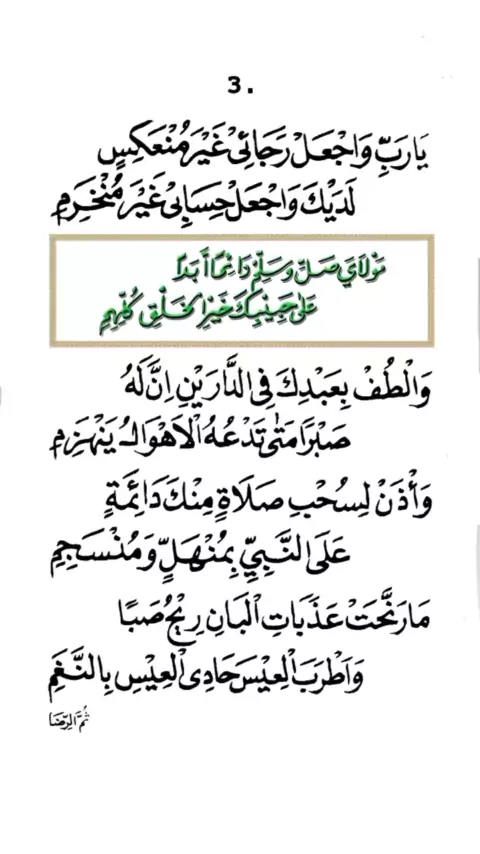 3.
يَارَبِّ وَاجْعَلْ رَجَائِىْ غَيْرَ مُنْعَكِسٍ
لَدَيْكَ وَاجْعَلْ حِسَابِىْ غَيْرَ مُنْخَرِمِ
مَوْلَايَ صَلِّ وَسَلِّمْ دَائِمًا أَبَدًا
عَلَى حَبِيْبِكَ خَيْرِ الْخَلْقِ كُلِّهِمِ
وَالْطُفْ بِعَبْدِكَ فِى الدَّارَيْنِ اِنَّ لَهُ
صَبْرًا مَتَى تَدْعُهُ الْاَهْوَالُ يَنْهَزِمِ
وَأْذَنْ لِسُحْبِ صَلَاةٍ مِنْكَ دَائِمَةٍ
عَلَى النَّبِيِّ بِمُنْهَلٍّ وَمُنْسَجِمِ
مَا رَنَّحَتْ عَذَبَاتِ الْبَانِ رِيْحُ صَبًا
وَاَطْرَبَ الْعِيْسَ حَادِى الْعِيْسِ بِالنَّغَمِ
ثُمَّ الرِّضَا